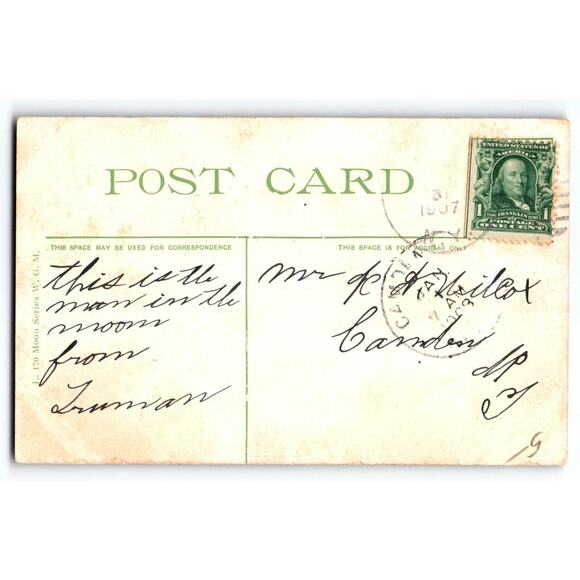 POST CARD
31
1907
N.Y.
UNITED STATES OF
AMERICA
1 1
FRANKLIN
POSTAGE
ONE CENT
THIS SPACE MAY BE USED FOR CORRESPONDENCE
THIS SPACE IS FOR ADDRESS ONLY
L. 170 Moon Series W. G. M.
this is the
man in the
moom
from
Truman
CAMDEN
JAN
1
AM
Mr Wilcox
Camden
N
Y